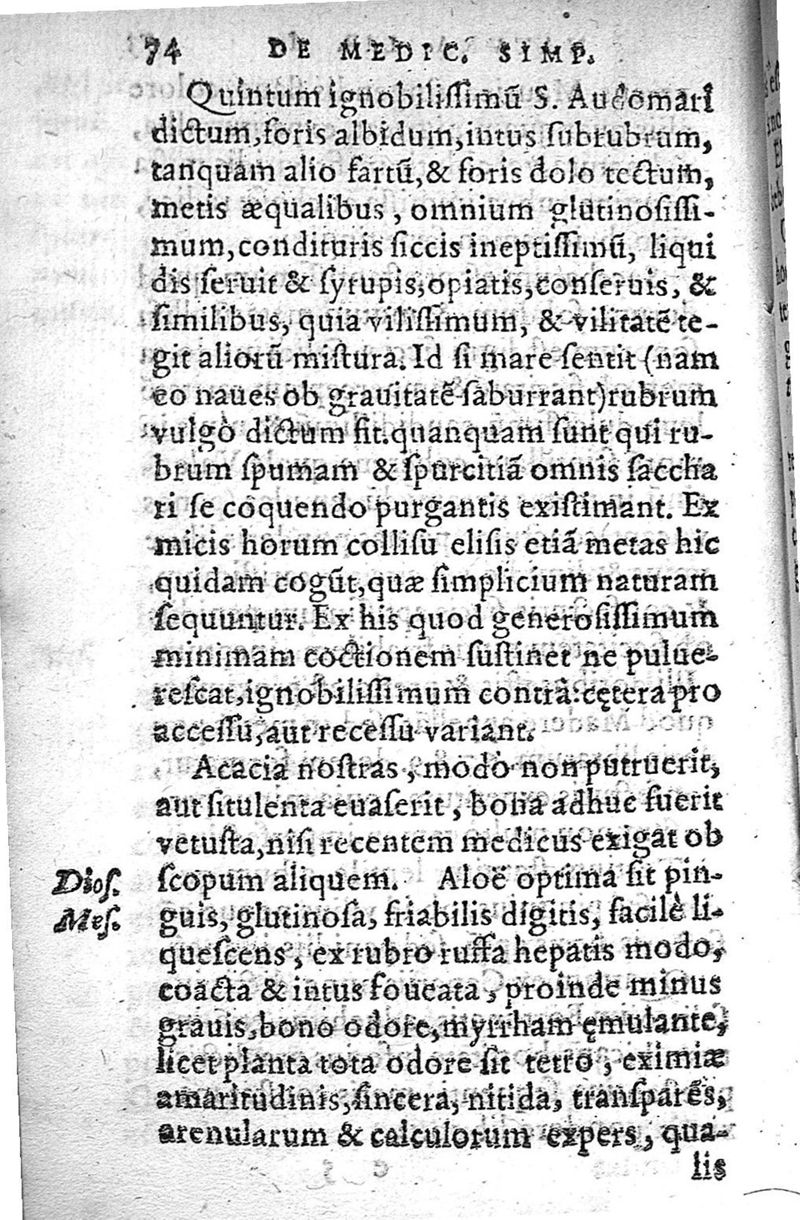 74 DE MEDIC. SIMP.
Quintum ignobiliſſimũ S. Audomari
dictum, foris albidum, intus ſubrubrum,
tanquam alio fartũ, & foris dolo tectum,
metis æqualibus, omnium glutinoſiſſi-
mum, condituris ſiccis ineptiſſimũ, liqui
dis ſeruit & ſyrupis, opiatis, conſeruis, &
ſimilibus, quia viliſſimum, & vilitatẽ te-
git aliorũ miſtura. Id ſi mare ſentit (nam
eo naues ob grauitatẽ ſaburrant) rubrum
vulgò dictum ſit. quanquam ſunt qui ru-
brum ſpumam & ſpurcitiã omnis ſaccha
ri ſe coquendo purgantis exiſtimant. Ex
micis horum colliſu eliſis etiã metas hic
quidam cogũt, quæ ſimplicium naturam
ſequuntur. Ex his quod generoſiſſimum
minimam coctionem ſuſtinet ne pulue-
reſcat, ignobiliſſimum contrà: cętera pro
acceſſu, aut receſſu variant.
Acacia noſtras, modò non putruerit,
aut ſitulenta euaſerit, bona adhuc fuerit
vetuſta, niſi recentem medicus exigat ob
Dioſ. ſcopum aliquem. Aloë optima ſit pin-
Meſ. guis, glutinoſa, friabilis digitis, facilè li-
queſcens, ex rubro ruffa hepatis modo,
coacta & intus foueata, proinde minus
grauis, bono odore, myrrham ęmulante,
licet planta tota odore ſit tetro, eximiæ
amaritudinis, ſincera, nitida, tranſparẽs,
arenularum & calculorum expers, qua-
lis